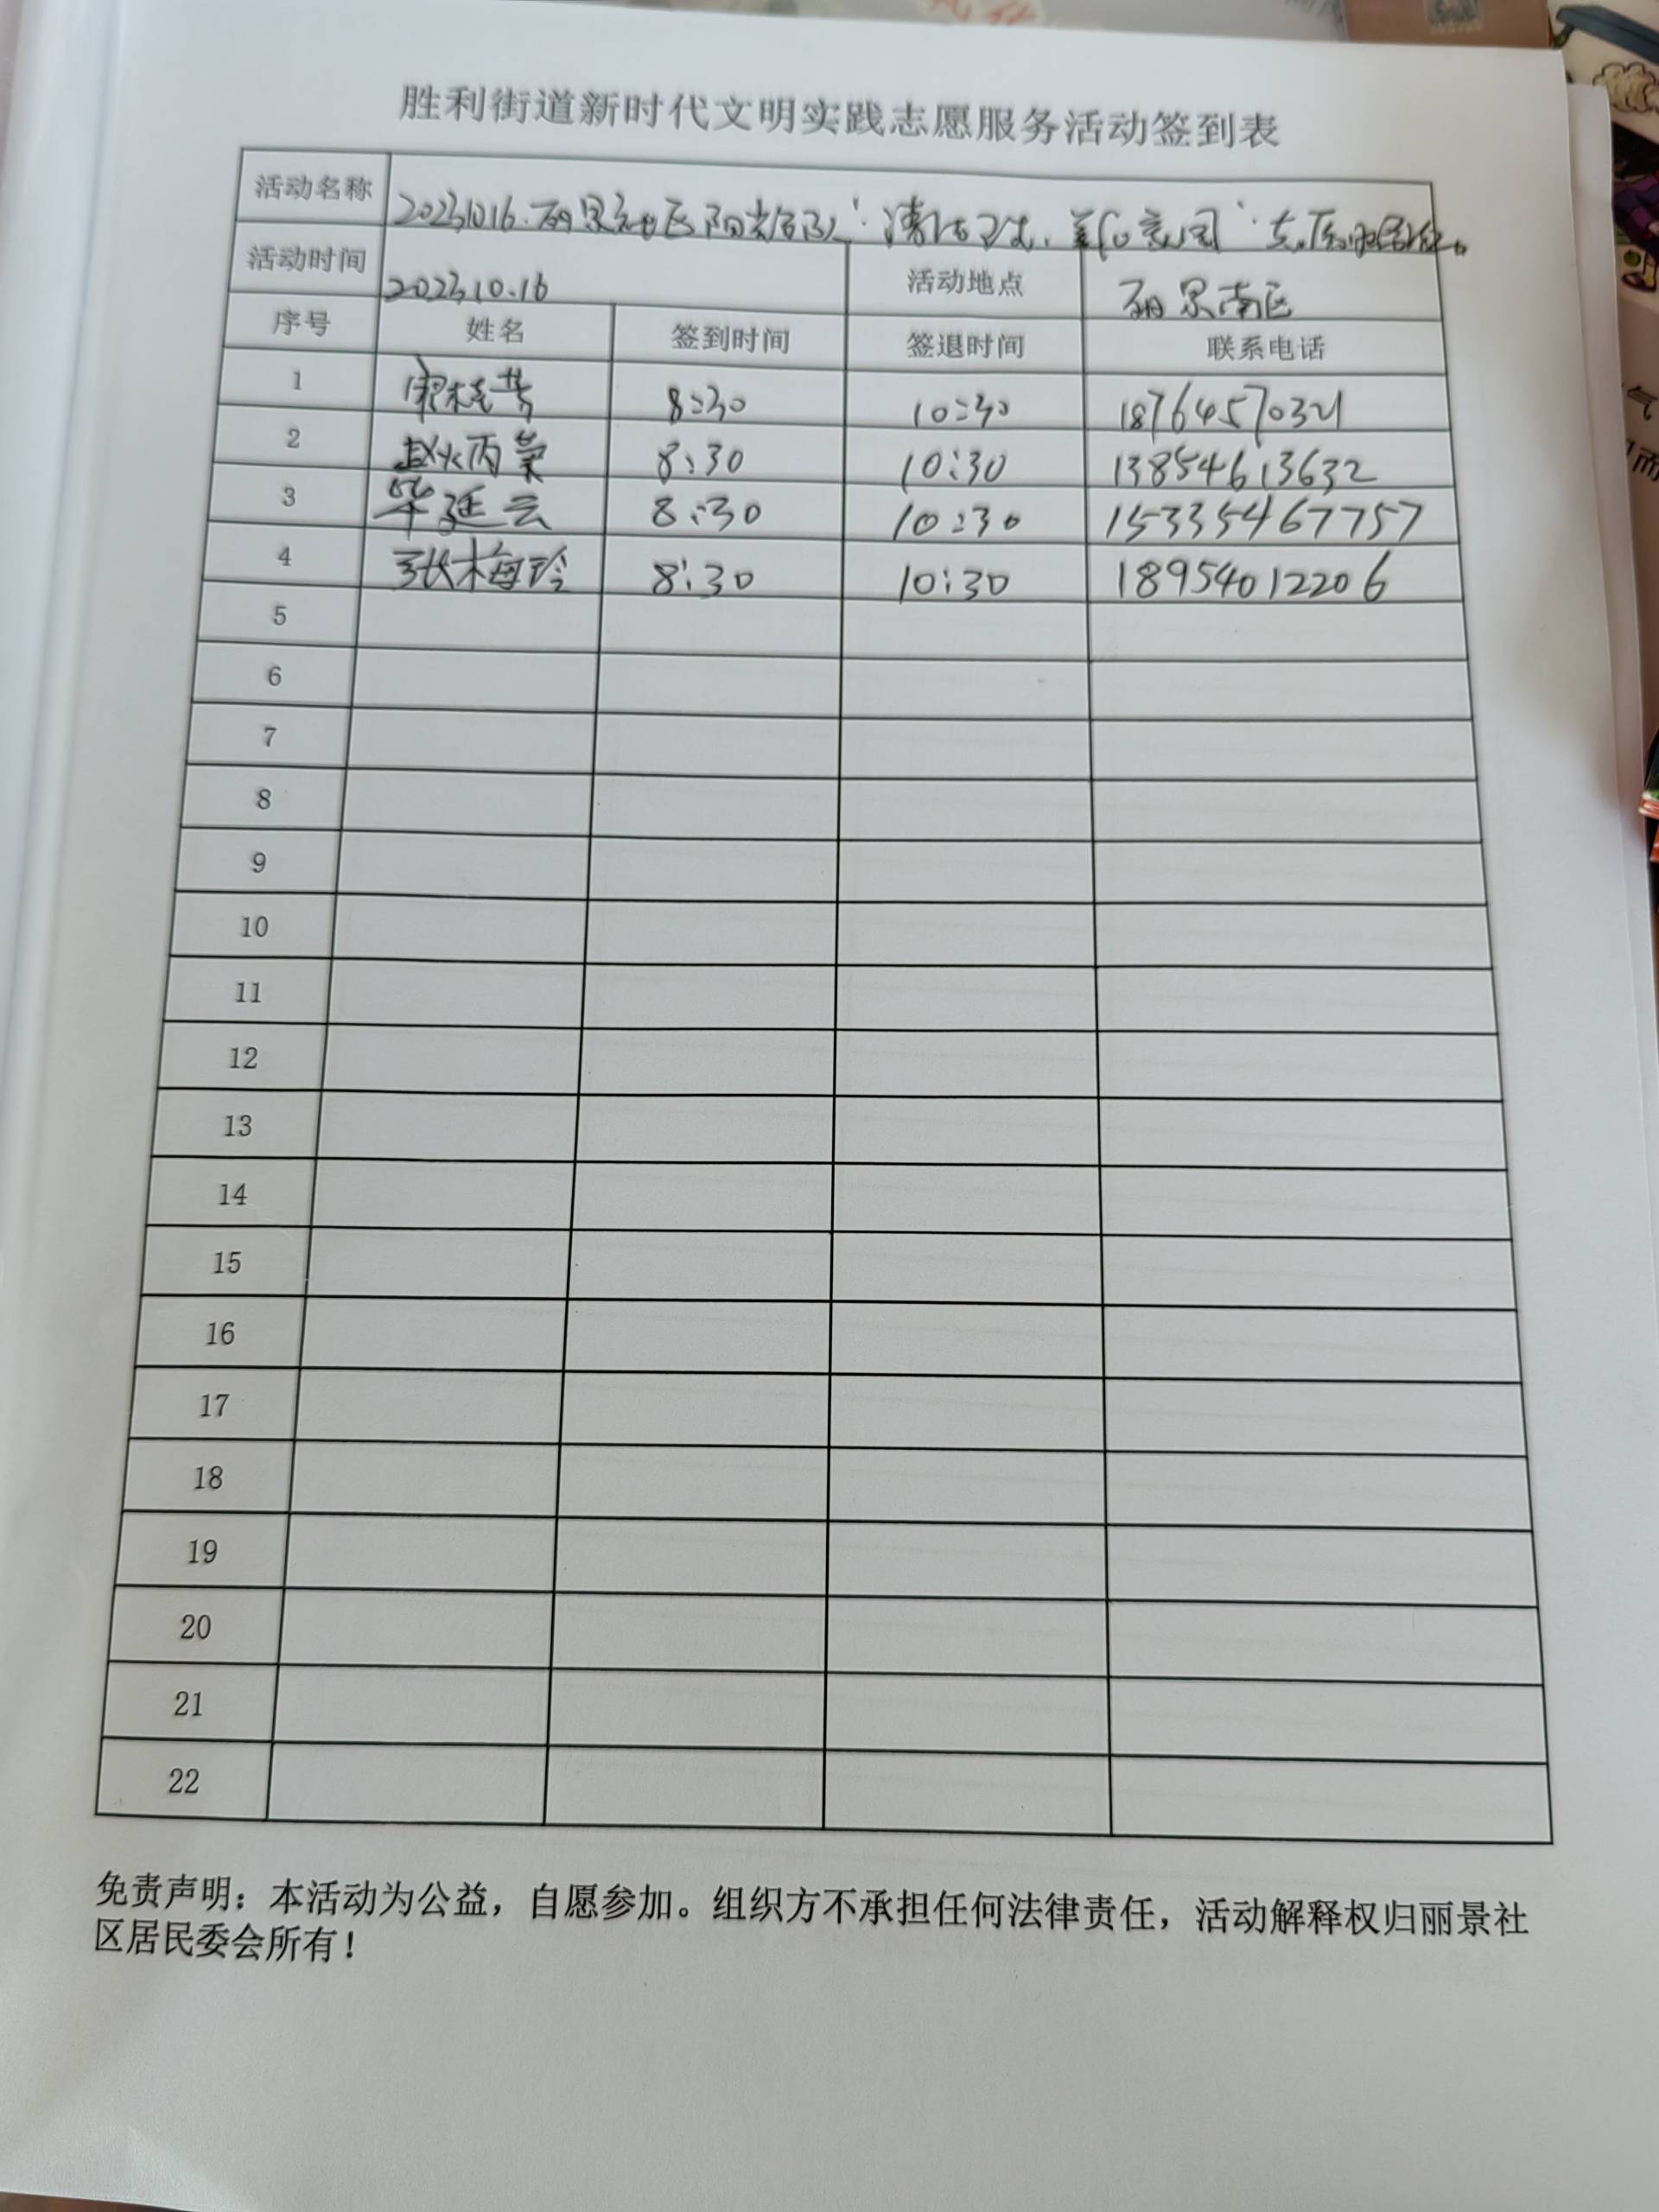 胜利街道新时代文明实践志愿服务活动签到表
活动名称 20231016.丽景社区阳光 "清洁卫生、美化家园"志愿服务活动
活动时间 2023.10.16 活动地点 丽景南区
序号 姓名 签到时间 签退时间 联系电话
1 8:30 10:30 18764570321
2 赵炳荣 8:30 10:30 13854613632
3 毕延云 8:30 10:30 15335467757
4 张梅玲 8:30 10:30 18954012206
5
6
7
8
9
10
11
12
13
14
15
16
17
18
19
20
21
22
免责声明：本活动为公益，自愿参加。组织方不承担任何法律责任，活动解释权归丽景社
区居民委会所有！